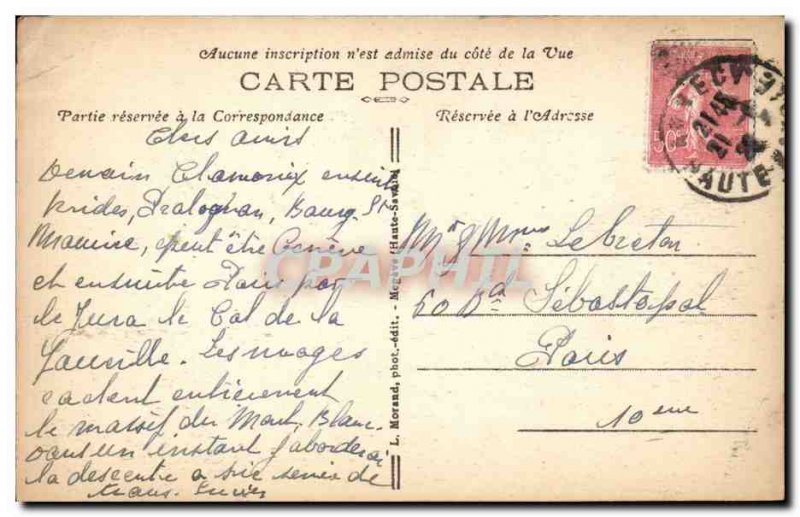 Aucune inscription n'est admise du côté de la Vue
CARTE POSTALE
Partie réservée à la Correspondance
Réservée à l'Adresse
Chers amis
Demain Chamonix ensuite
Brides, Pralognan, Bourg St
Maurice, peut être Genève
et ensuite Paris par
le Jura le Col de la
Faucille. Les nuages
cachent entièrement
le massif du Mont Blanc.
Dans un instant j'aborderai
la descente
de
L. Morand, phot.-édit. - Megève (Haute-Savoie)
Lebreton
60 Bd Sébastopol
Paris
10 eme
50c
21 45
21
HAUTE
CPAPHIL